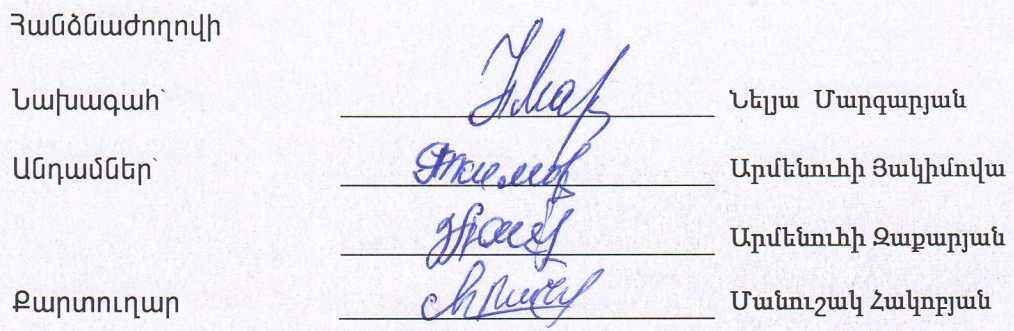 Հանձնաժողովի
Նախագահ՝ Նելյա Մարգարյան
Անդամներ՝ Արմենուհի Յակիմովա
Արմենուհի Զաքարյան
Քարտուղար Մանուշակ Հակոբյան